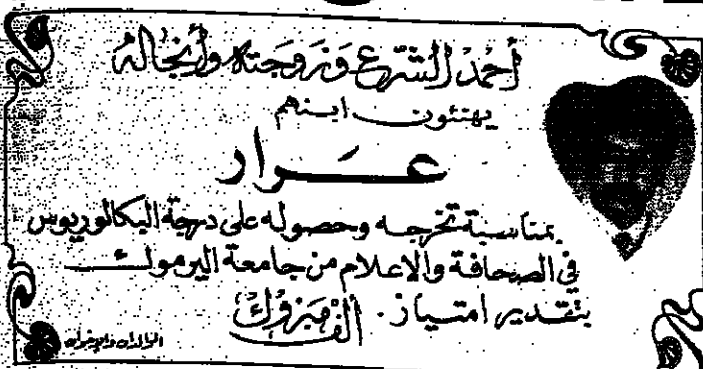 أحمد الشرع وزوجته وأنجاله
يهنئون ابنهم
عرار
بمناسبة تخرجه وحصوله على درجة البكالوريوس
في الصحافة والاعلام من جامعة اليرموك
بتقدير امتياز. ألف مبروك
الوالدان والإخوان